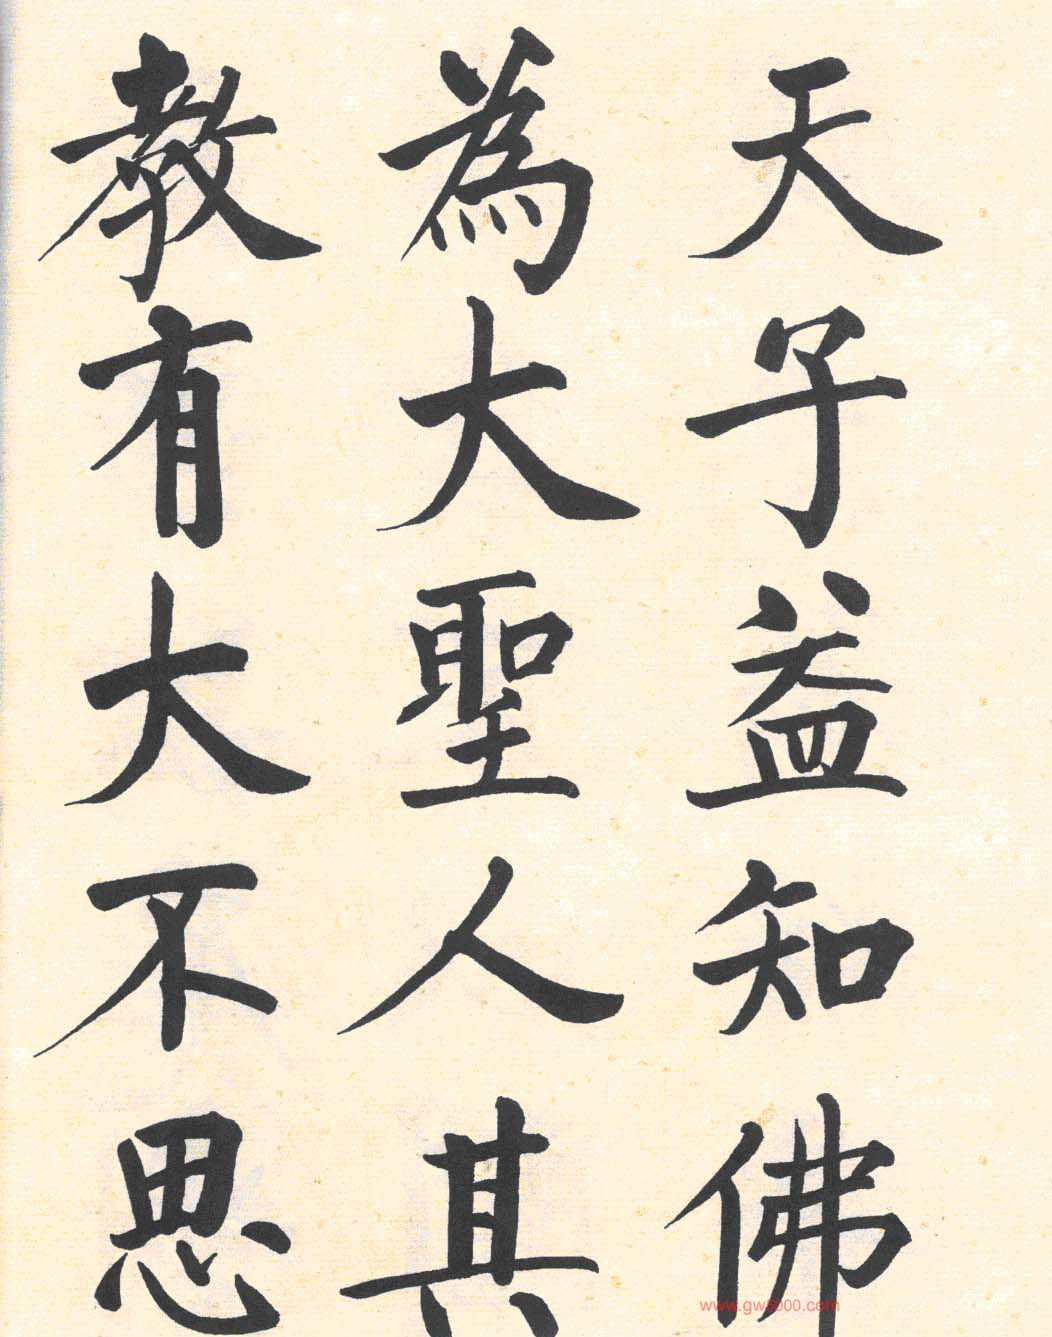 天子益知佛
為大聖人其
教有大不思
www.gw8000.com